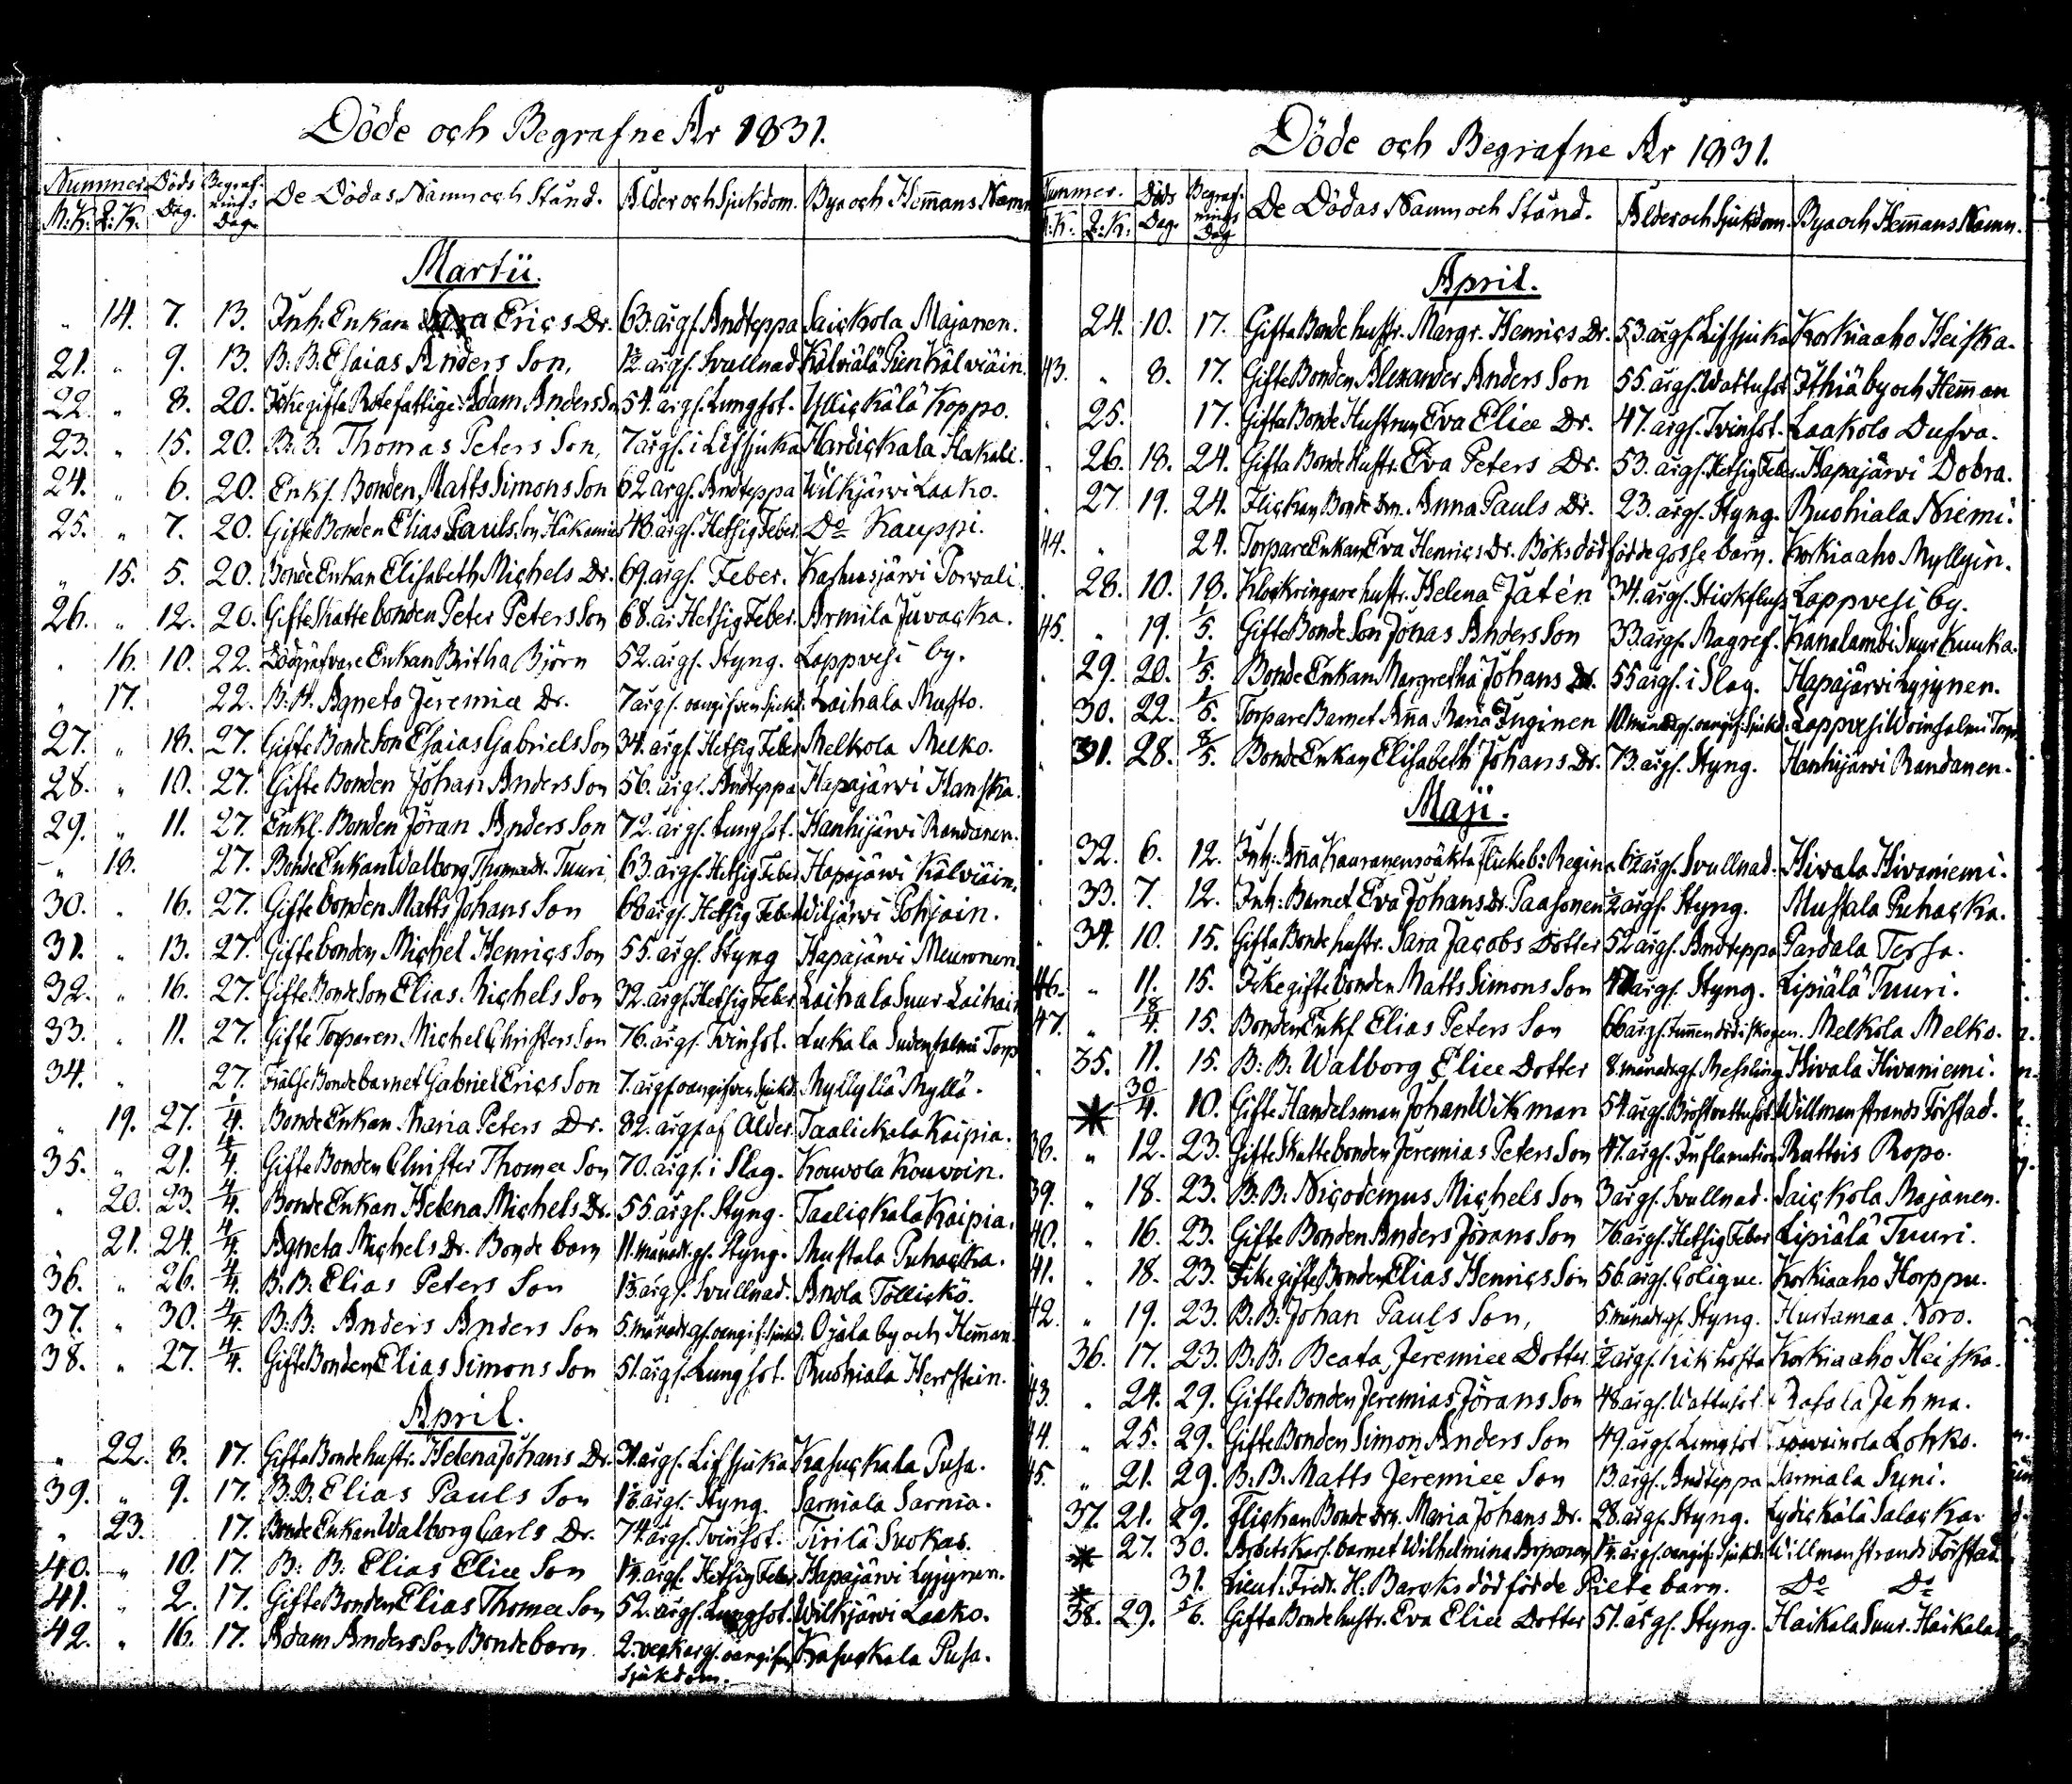 Döde och Begrafne År 1831.
Nummer. Döds Dag. Begrafnings Dag De Dödas Namn och Stånd. Ålder och Sjukdom. Bya och Hemmans Namn
M:K: Q:K:
Martii.
" 14. 7. 13. Inh: Enkan Sara Erics Dr. 63. årgl. Andteppa Saickola Majanen.
21. " 9. 13. B. B. Esaias Anders Son, årgl. Svullnad Kälviälä Pien Kälviäin.
22. " 8. 20. Icke gifta Rotefattige Adam Anders Son 54. årgl. Lungsot. Yllickälä Koppo.
23. " 15. 20. B. B. Thomas Peters Son, 7 årgl. i Lifsjuka Hardickala Hakali.
24. " 6. 20. Enkl. Bonden Matts Simons Son 62 årgl. Andteppa Wilkjärwi Laako.
25. " 7. 20. Gifte Bonden Elias Pauls Son 48. årgl. Hetsig Feber. Do Kauppi.
" 15. 5. 20. Bonde Enkan Elisabeth Michels Dr. 69. årgl. Feber. Kasuksjärwi Porvali.
26. " 12. 20. Gifte Skattebonden Peter Peters Son 68. år Hetsig Feber. Armila Juvacka.
" 16. 10. 22. Dödgräfvare Enkan Britha Björn 52. årgl. Styng. Lappvesi by.
" 17. 22. B. B. Agneta Jeremiæ Dr. 7 årgl. oangifven Sjukd. Laihala Musto.
27. " 18. 27. Gifte Bonde Son Esaias Gabriels Son 34. årgl. Hetsig Feber Melkola Melko.
28. " 10. 27. Gifte Bonden Johan Anders Son 56. årgl. Andteppa Hapajärwi Hanska.
29. " 11. 27. Enkl. Bonden Jöran Anders Son 72. årgl. Lungsot. Hanhijärwi Randanen.
" 18. 27. Bonde Enkan Walborg Thomædr. Tuuri 63. årgl. Hetsig Feber Hapajärwi Kälviäin.
30. " 16. 27. Gifte bonden Matts Johans Son 68 årgl. Hetsig Feber Wiljärwi Pohjain.
31. " 13. 27. Gifte bonden Michel Henrics Son 55. årgl. Styng Hapajärwi Meuronen.
32. " 16. 27. Gifte Bonde Son Elias Michels Son 32. årgl. Hetsig Feber Laihala Suur Laihain
33. " 11. 27. Gifte Torparen Michel Christers Son 76. årgl. Tvinsot. Lukala Sudensalmi Torp
34. " 27. Frälse Bondebarnet Gabriel Erics Son 7. årgl. oangifven Sjukd. Myllyllä Myllä.
" 19. 27. 4/4. Bonde Enkan Maria Peters Dr. 82. årgl. af Ålder. Taalickala Kaipia.
35. " 21. 4/4. Gifte Bonden Christer Thomæ Son 70. årgl. i Slag. Kouvola Kouvoin.
" 20. 23. 4/4. Bonde Enkan Helena Michels Dr. 55. årgl. Styng. Taalickala Kaipia.
" 21. 24. 4/4. Agneta Michels Dr. Bonde barn 11. månad. gl. Styng. Mustala Puhacka.
36. " 26. 4/4. B. B. Elias Peters Son årgl. Svullnad. Anola Töllickö.
37. " 30. 4/4. B. B. Anders Anders Son 5. månads gl. oangif. Sjukd. Ojala by och Hemman.
38. " 27. 4/4. Gifte Bonden Elias Simons Son 51. årgl. Lungsot. Ruohiala Herrstein.
April.
" 22. 8. 17. Gifta Bonde hustr. Helena Johans Dr. 31. årgl. Lifsjuka Kasuckala Pusa.
39. " 9. 17. B. B. Elias Pauls Son årgl. Styng. Sarniala Sarnia.
" 23. 17. Bonde Enkan Walborg Carls Dr. 74. årgl. Tvinsot. Tirilä Suokas.
40. " 10. 17. B. B. Elias Eliæ Son årgl. Hetsig Feber Hapajärwi Lyjynen.
41. " 2. 17. Gifte Bonden Elias Thomæ Son 52. årgl. Lungsot. Wilkjärwi Laako.
42. " 16. 17. Adam Anders Son Bondebarn 2. veck. årgl. oangifven Kasuckala Pusa.
Sjukdom.
Döde och Begrafne År 1831.
Nummer. Döds Dag. Begrafnings Dag De Dödas Namn och Stånd. Ålder och Sjukdom. Bya och Hemmans Namn.
M:K. Q:K:
April.
24. 10. 17. Gifta Bonde hustr. Margr. Henrics Dr. 53. årgl. Lifsjuka Korkiaaho Heiska.
43. " 8. 17. Gifte Bonden Alexander Anders Son 55. årgl. Wattusot Ithiä by och Hemman
25. 17. Gifta Bonde Hustrun Eva Eliæ Dr. 47. årgl. Tvinsot. Laakola Dufva.
26. 18. 24. Gifta Bonde Hustr. Eva Peters Dr. 53. årgl. Hetsig Feber. Hapajärwi Dobra.
27 19. 24. Flickan Bonde Drn. Anna Pauls Dr. 23. årgl. Styng. Ruohiala Niemi.
44. " 24. Torpare Enkan Eva Henrics Dr. Böks dödfödde gosse barn. Korkiaaho Myllyin.
28. 10. 18. Klockringare hustr. Helena Jatén 34. årgl. Stickfluss Lappvesi by.
45. " 19. 1/5. Gifte Bonde Son Jonas Anders Son 33. årgl. Magref. Kanalambi Suur Kuuka.
29. 20. 1/5. Bonde Enkan Margretha Johans Dr. 55 årgl. i Slag. Hapajärwi Lyjynen.
30. 22. 1/5. Torpare Barnet Anna Maria Inginen 10. månads gl. oangif. Sjukd. Lappvesi Woinsalmi Torp
31. 28. 8/5. Bonde Enkan Elisabeth Johans Dr. 73. årgl. Styng. Hanhijärwi Randanen.
Maji.
32. 6. 12. Inh: Anna Kauranens oäkta Flickeb: Regina årgl. Svullnad. Hivala Hivaniemi.
33. 7. 12. Inh: Barnet Eva Johans Dr. Paasonen ½ årgl. Styng. Mustala Puhacka.
34. 10. 15. Gifta Bonde hustr. Sara Jacobs Dotter 52 årgl. Andteppa Pardala Tersa.
46. " 11. 15. Icke gifte bonden Matts Simons Son årgl. Styng. Lipiälä Tuuri.
47. " 18/4. 15. Bonden Enkl Elias Peters Son 66 årgl. funnen död i skogen. Melkola Melko.
35. 11. 15. B: B. Walborg Eliæ Dotter 8. månads gl. Messling Hivala Hivaniemi.
* 30/4. 10. Gifte Handelsman Johan Wikman 54. årgl. Bröstvattusot Willmanstrands Förstad.
38. " 12. 23. Gifte Skattebonden Jeremias Peters Son 47. årgl. Inflamation Rattois Ropo.
39. " 18. 23. B. B. Nicodemus Michels Son 3 årgl. Svullnad. Saickola Majanen.
40. " 16. 23. Gifte Bonden Anders Jörans Son 76. årgl. Hetsig Feber Lipiälä Tuuri.
41. " 18. 23. Icke gifte Bonden Elias Henrics Son 56. årgl. Colique. Korkiaaho Horppu.
42. " 19. 23. B. B. Johan Pauls Son, 5. månads gl. Styng. Hurtamaa Noro.
36. 17. 23. B. B. Beata Jeremiæ Dotter ½ årgl. Kikhosta Korkiaaho Heiska.
43. " 24. 29. Gifte Bonden Jeremias Jörans Son 48 årgl. Wattusot. Rasala Jehma.
44. " 25. 29. Gifte Bonden Simon Anders Son 49. årgl. Lungsot Lohko.
45. " 21. 29. B. B. Matts Jeremiæ Son 13 årgl. Andteppa Sarniala Suni.
37. 21. 29. Flickan Bonde Drn. Maria Johans Dr. 28. årgl. Styng. Lydickälä Salacka.
* 27. 30. Arbets Karl. barnet Wilhelmina Arponen årgl. oangif. Sjukd. Willmanstrands Förstad.
* 31. Lieut: Fredr. H. Barcks dödfödde Pilte barn. Do Do
38. 29. 5/6. Gifta Bonde hustr. Eva Eliæ Dotter 51. årgl. Styng. Haikala Suur. Haikala